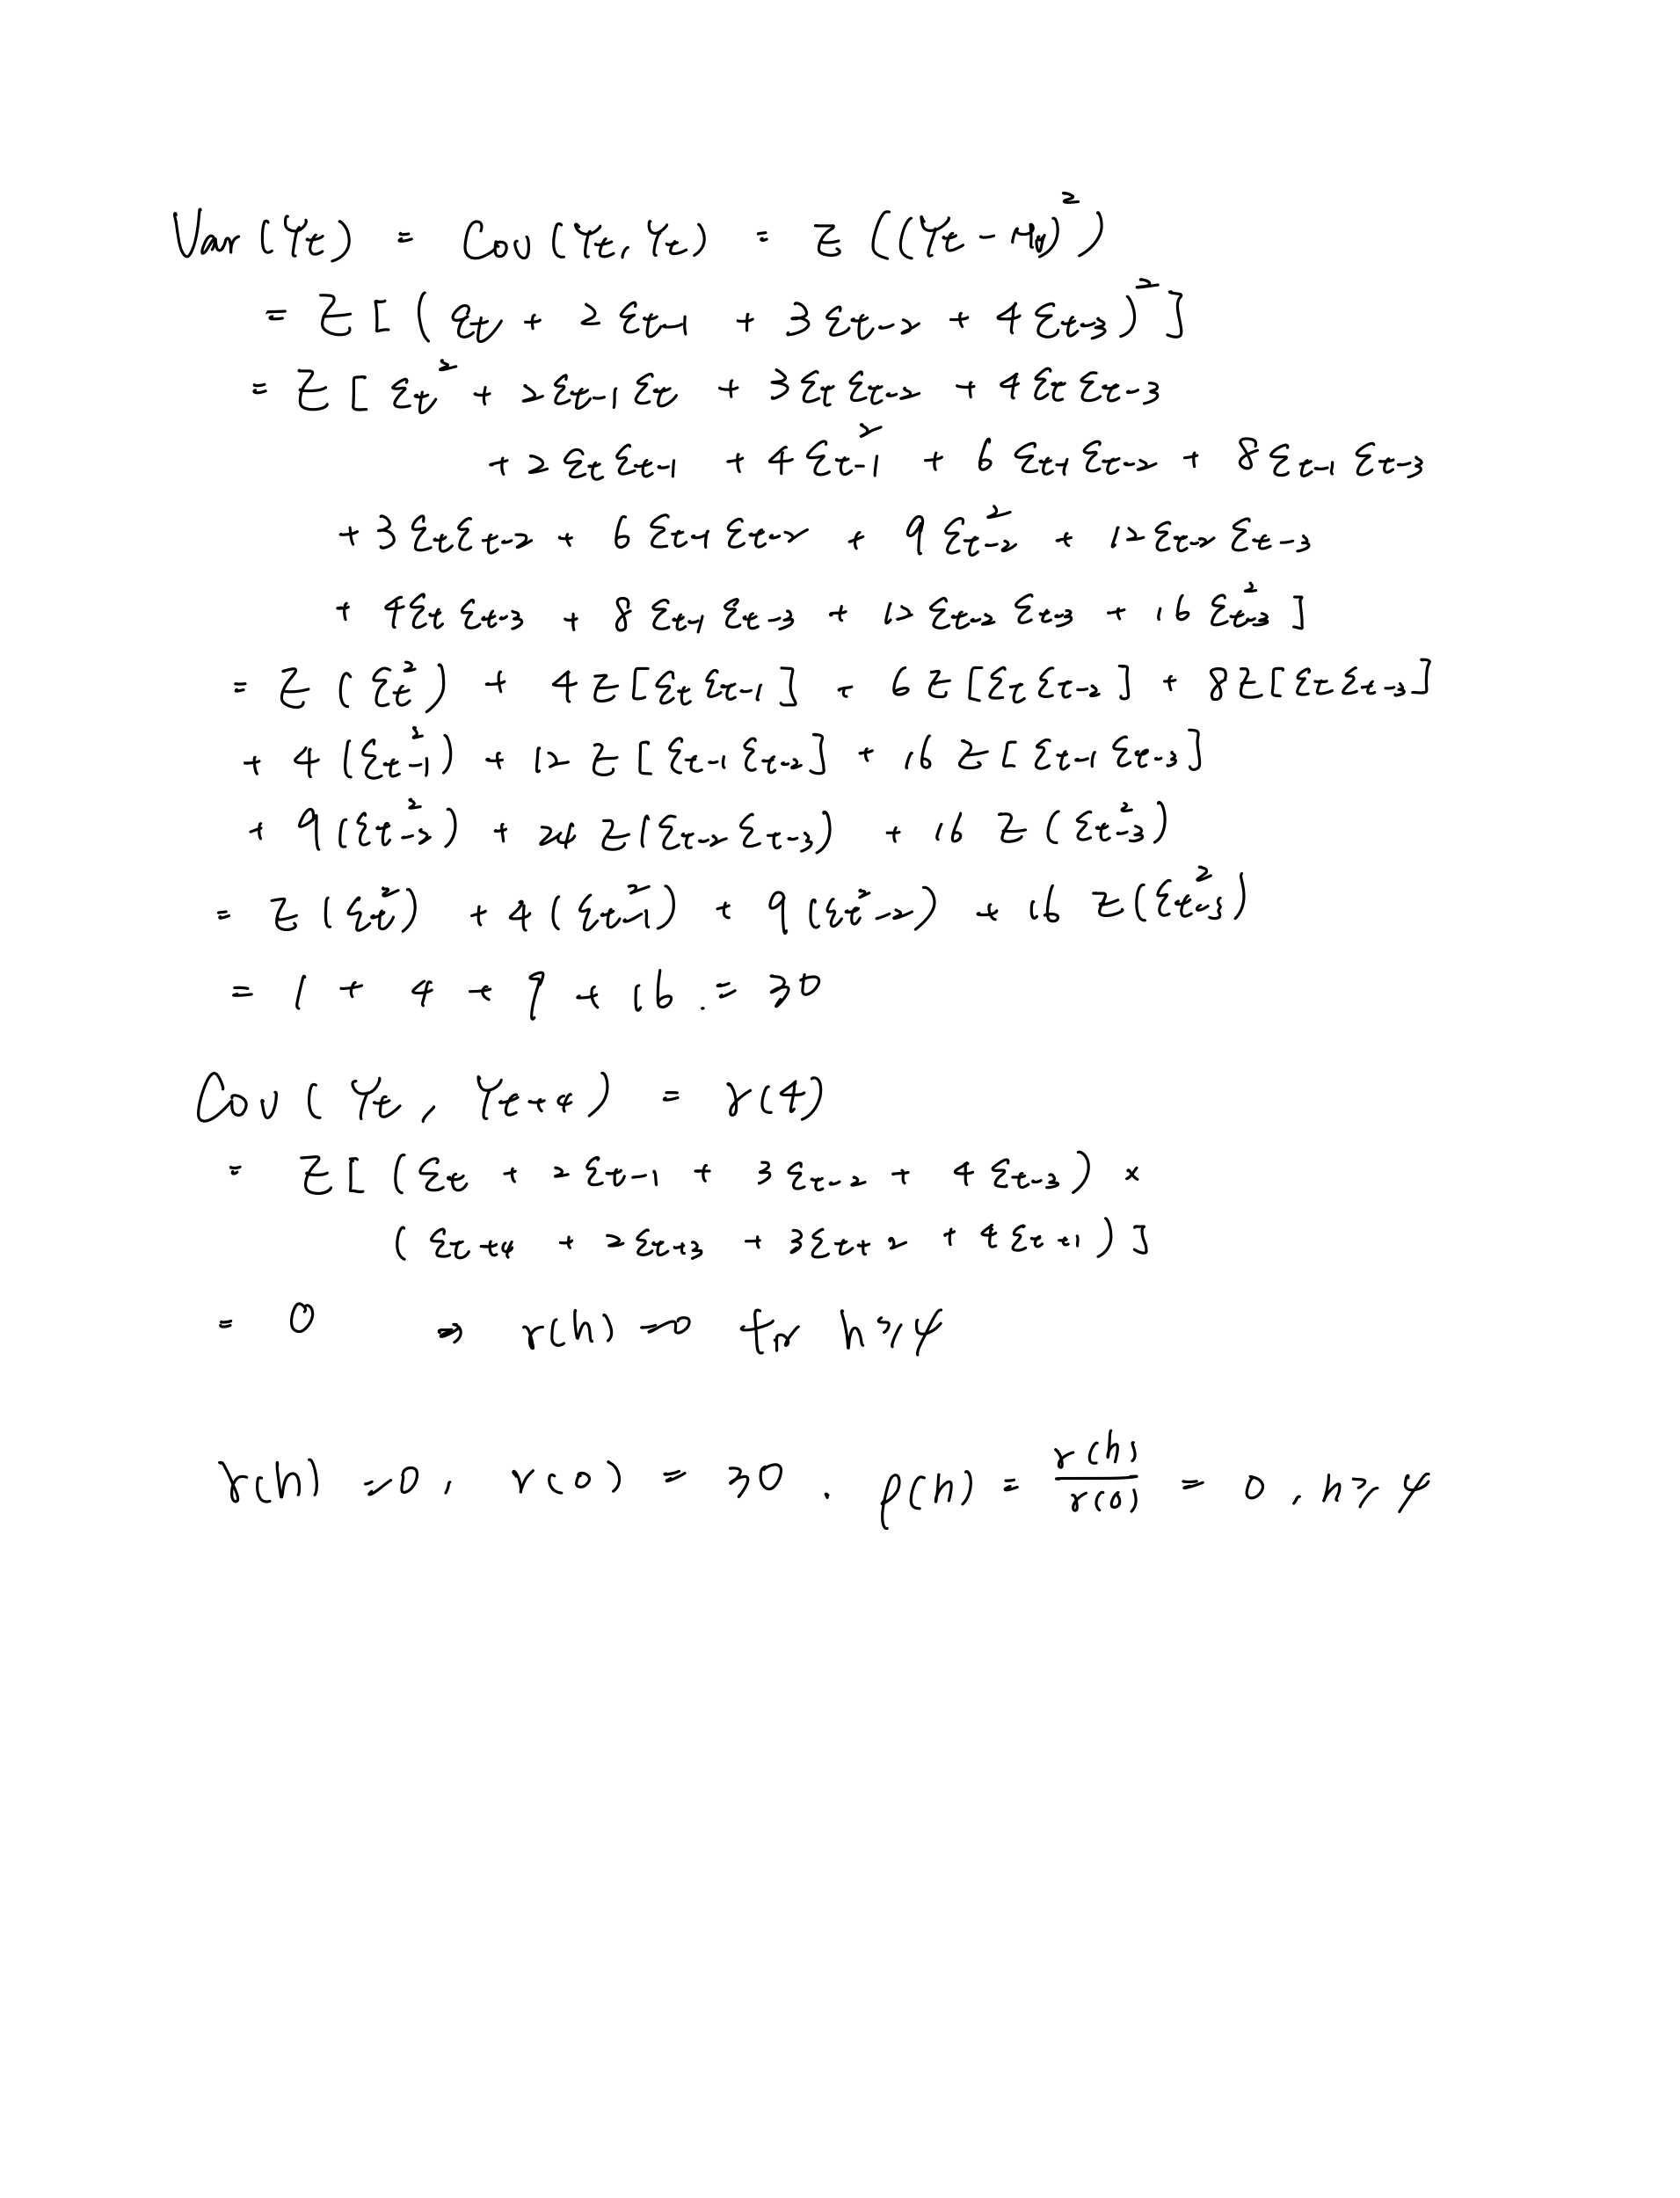 Var(Yt) = Cov(Yt, Yt) = E((Yt - μy)²)
= E[(εt + 2εt-1 + 3εt-2 + 4εt-3)²]
= E[εt² + 2εt-1εt + 3εtεt-2 + 4εtεt-3
+ 2εtεt-1 + 4εt-1² + 6εt-1εt-2 + 8εt-1εt-3
+ 3εtεt-2 + 6εt-1εt-2 + 9εt-2² + 12εt-2εt-3
+ 4εtεt-3 + 8εt-1εt-3 + 12εt-2εt-3 + 16εt-3²]
= E(εt²) + 4E[εtεt-1] + 6E[εtεt-2] + 8E[εtεt-3]
+ 4(εt-1²) + 12E[εt-1εt-2] + 16E[εt-1εt-3]
+ 9(εt-2²) + 24E(εt-2εt-3) + 16E(εt-3²)
= E(εt²) + 4(εt-1²) + 9(εt-2²) + 16E(εt-3²)
= 1 + 4 + 9 + 16. = 30
Cov(Yt, Yt+4) = γ(4)
= E[(εt + 2εt-1 + 3εt-2 + 4εt-3) ×
(εt+4 + 2εt+3 + 3εt+2 + 4εt+1)]
= 0 ⇒ γ(h) = 0 for h ≥ 4
γ(h) = 0, γ(0) = 30. ρ(h) = γ(h)/γ(0) = 0, h ≥ 4